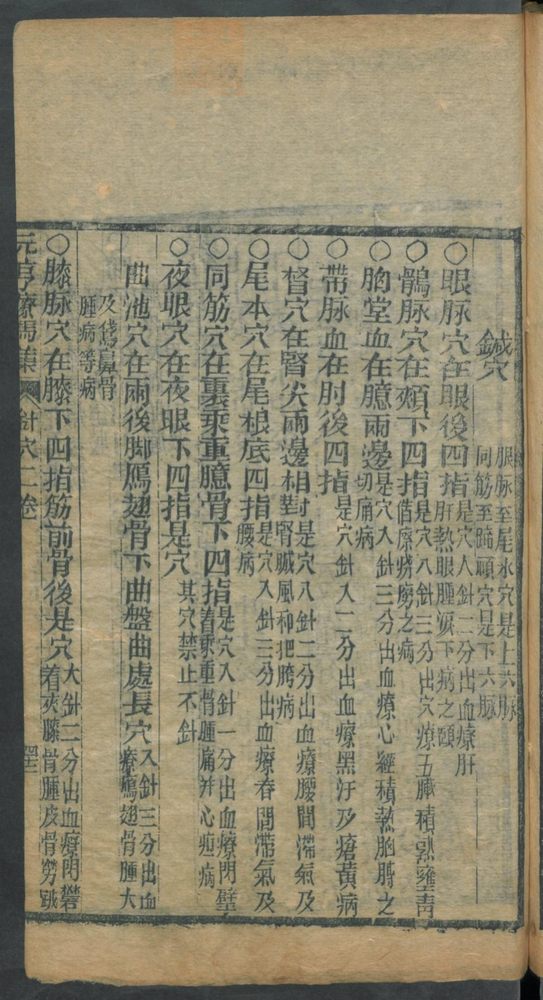 鍼穴 眼脉至尾本穴是上六脉
同筋至蹄頭穴是下六脉
○眼脉穴在眼後四指是穴入針二分出血療肝
肝熱眼腫淚下病之頤
○鶻脉穴在頰下四指是穴入針三分出穴療五臟積熱壅毒
借療癆之病
○胸堂血在臆兩邊是穴入針三分出血療心經積熱胸膊之
切痛病
○帶脉血在肘後四指是穴針入二分出血療黑汗及瘡黃病
○督穴在腎尖兩邊相對是穴入針二分出血療腰間滯氣及
腎臟風和把胯病
○尾本穴在尾根底四指是穴入針三分出血療春間滯氣及
腰病
○同筋穴在裏乘重臆骨下四指是穴入針一分出血療閃壁
着乘重骨腫痛并心疸病
○夜眼穴在夜眼下四指是穴其穴禁止不針
曲池穴在兩後脚鴈翅骨下曲盤曲處長穴入針三分出血
療鴈翅骨腫大
及鵞鼻骨
腫病等病
○膝脉穴在膝下四指筋前骨後是穴大針二分出血療閃礬
着夾膝骨腫皮骨勞
元亨療馬集 針穴二卷